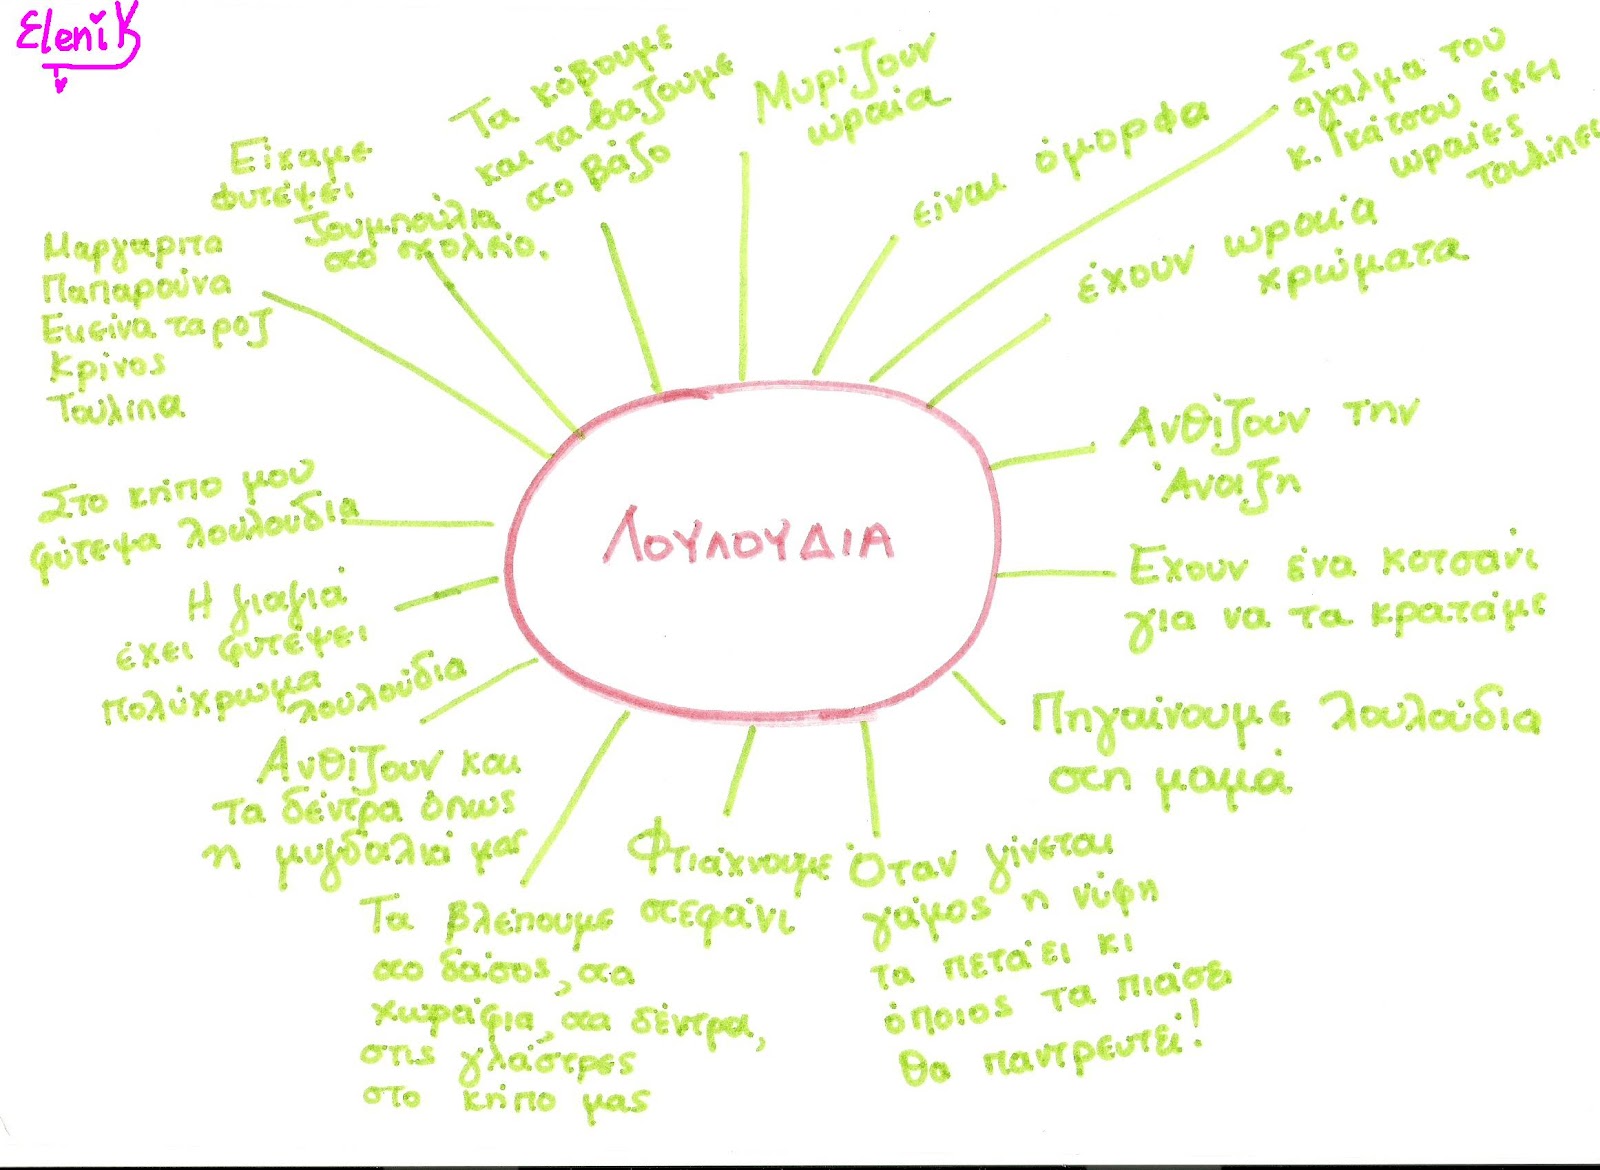 Eleni K
Μαργαρίτα
Παπαρούνα
Εκείνα τα ροζ
Κρίνος
Τουλίπα
Είχαμε
φυτέψει
Ζουμπούλια
στο σχολείο.
Τα κόβουμε
και τα βάζουμε
στο βάζο
Μυρίζουν
ωραία
είναι όμορφα
Στο
άγαλμα του
κ. Γκάτσου έχει
ωραίες
τουλίπες
έχουν ωραία
χρώματα
Ανθίζουν την
Άνοιξη
Έχουν ένα κοτσάνι
για να τα κρατάμε
Πηγαίνουμε λουλούδια
στη μαμά
Όταν γίνεται
γάμος η νύφη
τα πετάει κι
όποιος τα πιάσει
θα παντρευτεί!
Φτιάχνουμε
στεφάνι
Τα βλέπουμε
στο δάσος, στα
χωράφια, στα δέντρα,
στις γλάστρες
στο κήπο μας
Ανθίζουν και
τα δέντρα όπως
η μυγδαλιά μας
Η γιαγιά
έχει φυτέψει
πολύχρωμα
λουλούδια
Στο κήπο μου
φύτεψα λουλούδια
ΛΟΥΛΟΥΔΙΑ